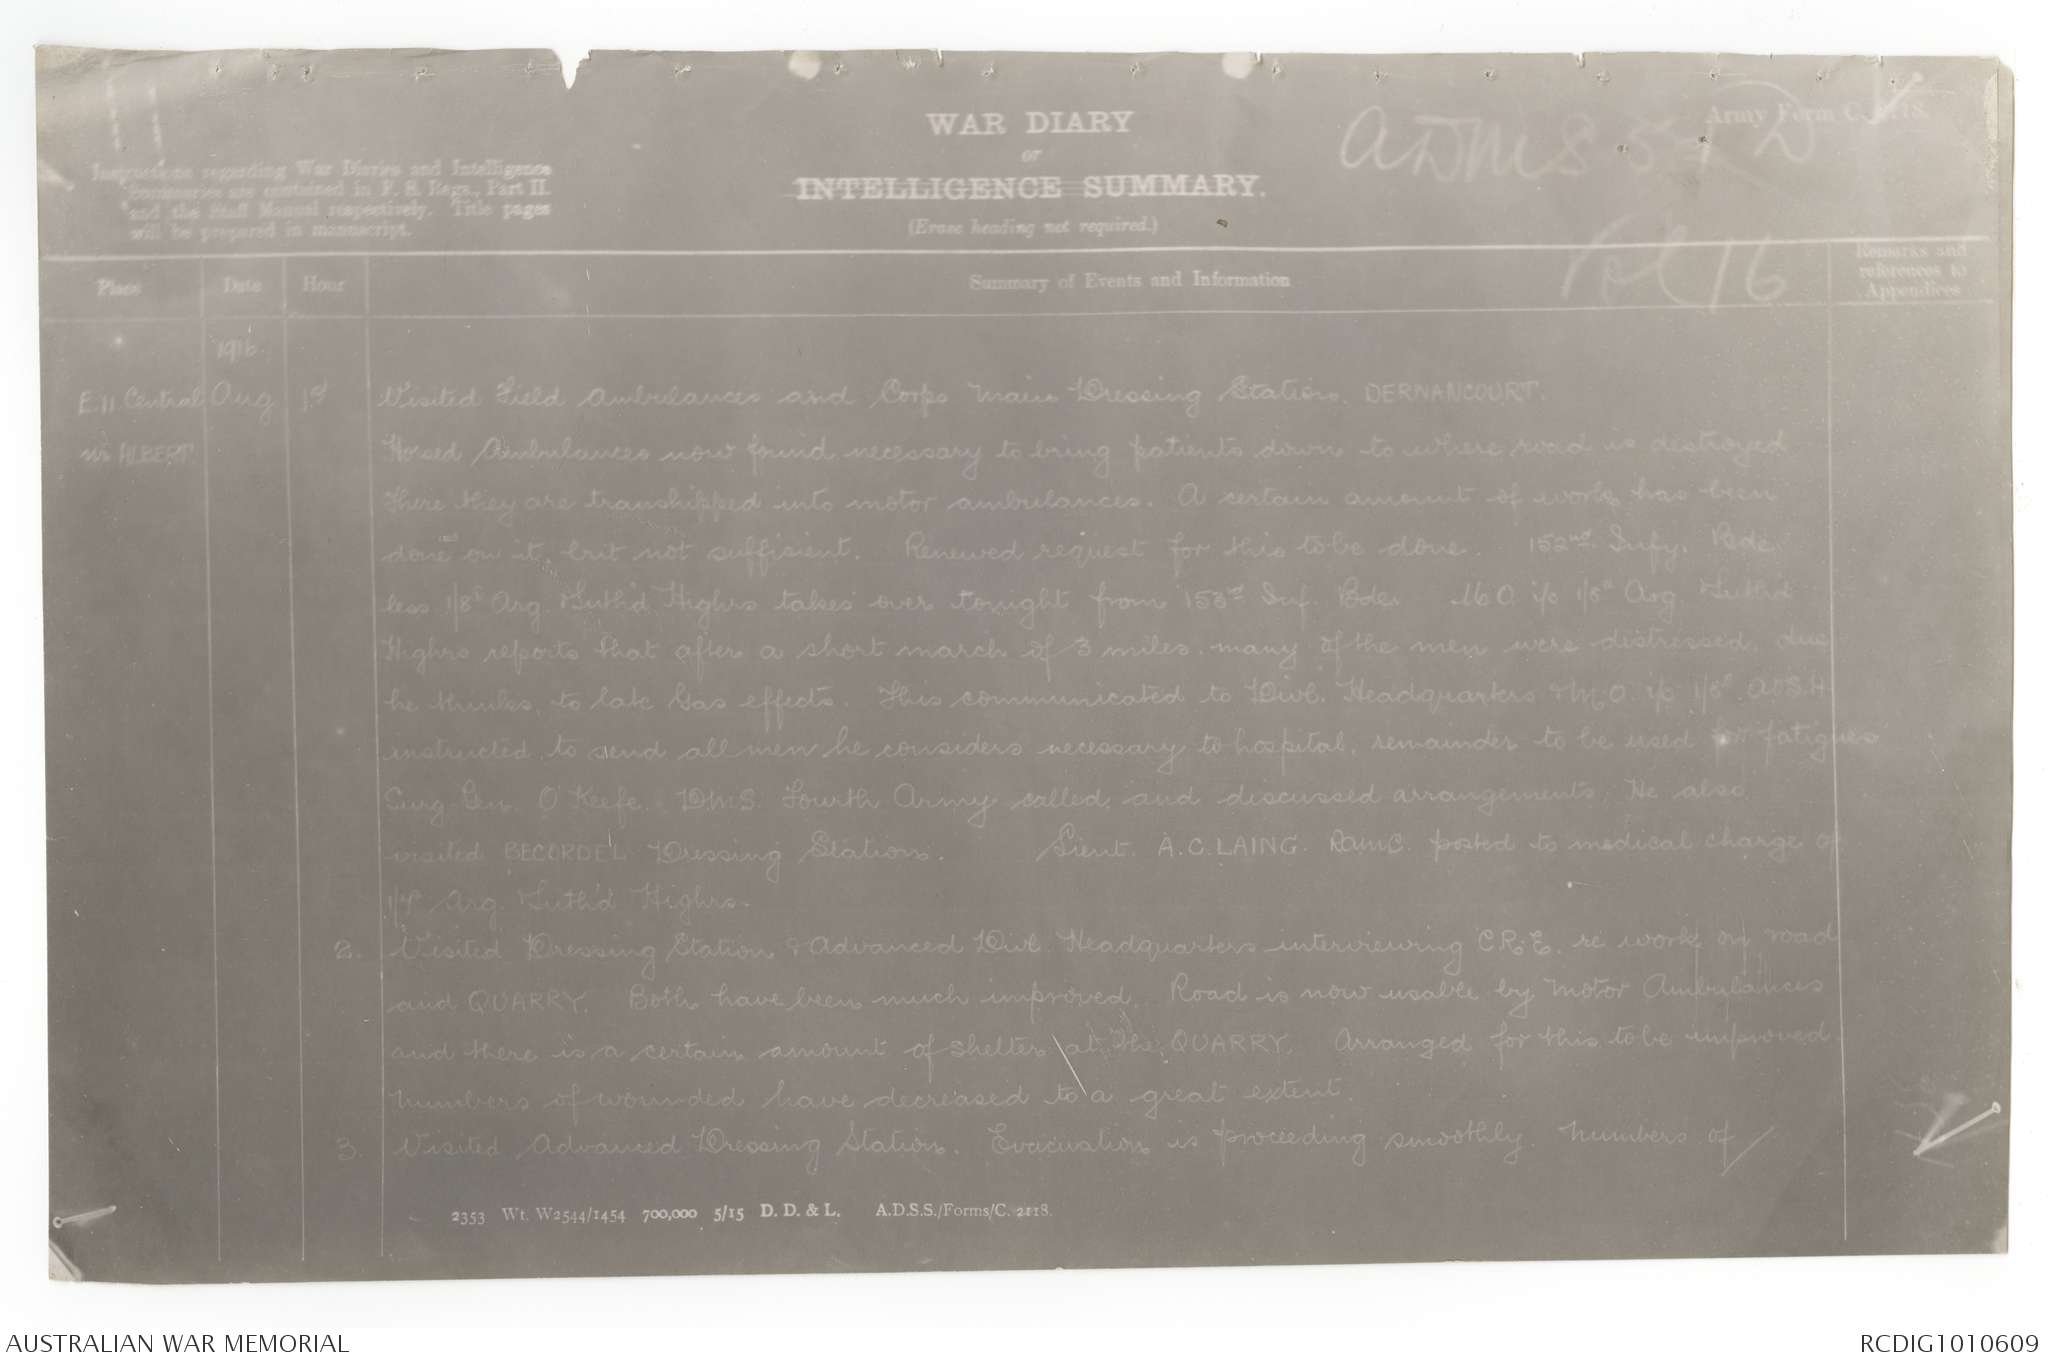 WAR DIARY
or
INTELLIGENCE SUMMARY.
(Erase heading not required.)
Army Form C. 2118.
ADMS 51 D
Vol 16
Instructions regarding War Diaries and Intelligence
Summaries are contained in F. S. Regs., Part II.
and the Staff Manual respectively. Title pages
will be prepared in manuscript.
Place Date Hour Summary of Events and Information Remarks and references to Appendices
1916
E.11.Central Aug 1st Visited Field Ambulances and Corps Main Dressing Station. DERNANCOURT.
nr ALBERT. Horsed Ambulances now found necessary to bring patients down to where road is destroyed
there they are transhipped into motor ambulances. A certain amount of work has been
done on it, but not sufficient. Renewed request for this to be done. 152nd. Infy. Bde.
less 1/8th Arg. & Suth'd Highrs takes over tonight from 153rd Inf. Bde. M.O. i/c 1/8th Arg. Suth'd
Highrs reports that after a short march of 3 miles, many of the men were distressed, due
he thinks, to late Gas effects. This communicated to Divl. Headquarters & M.O. i/c 1/8th A & S.H
instructed to send all men he considers necessary to hospital, remainder to be used for fatigues
Surg. Gen. O'Keefe. DMS. Fourth Army called, and discussed arrangements. He also
visited BECORDEL Dressing Station. Lieut. A.C. LAING. RAMC. posted to medical charge of
1/7th Arg. Suth'd Highrs.
2. Visited Dressing Station & Advanced Divl. Headquarters interviewing C.R.E. re work on road
and QUARRY. Both have been much improved. Road is now usable by Motor Ambulances
and there is a certain amount of shelter at the QUARRY. Arranged for this to be improved
Numbers of wounded have decreased to a great extent.
3. Visited Advanced Dressing Station. Evacuation is proceeding smoothly. Numbers of /
2353 Wt. W2544/1454 700,000 5/15 D. D. & L. A.D.S.S./Forms/C. 2118.
AUSTRALIAN WAR MEMORIAL
RCDIG1010609